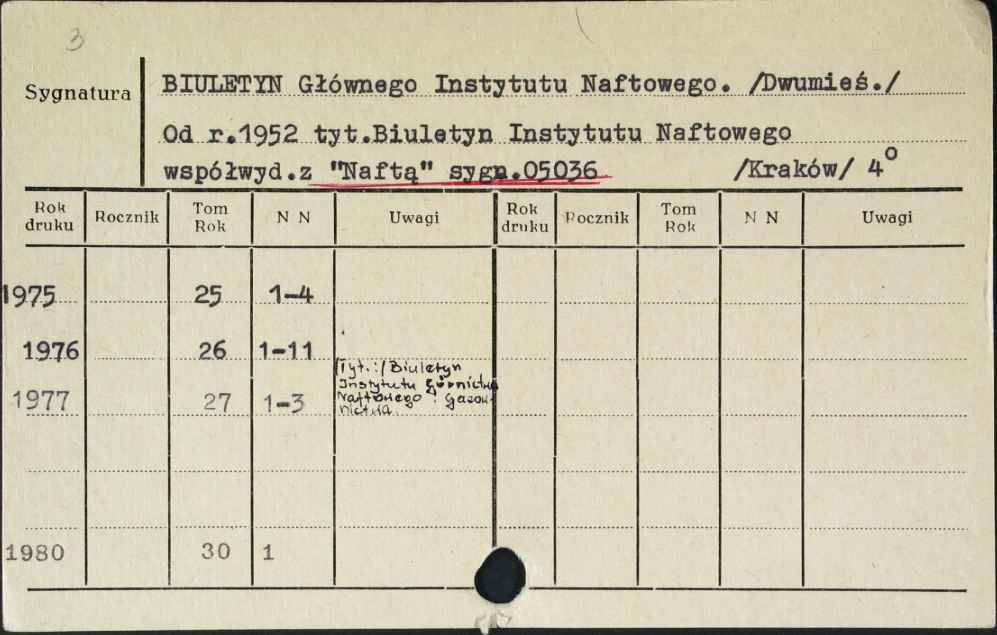 3
Sygnatura
BIULETYN Głównego Instytutu Naftowego. /Dwumieś./
Od r.1952 tyt.Biuletyn Instytutu Naftowego
współwyd.z "Naftą" sygn.05036 /Kraków/ 4°
Rok druku Rocznik Tom Rok N N Uwagi Rok druku Rocznik Tom Rok N N Uwagi
1975 25 1-4
1976 26 1-11
Tyt.:/Biuletyn
Instytutu Górnictwa
1977 27 1-3 Naftowego i Gazow-
nictwa
1980 30 1